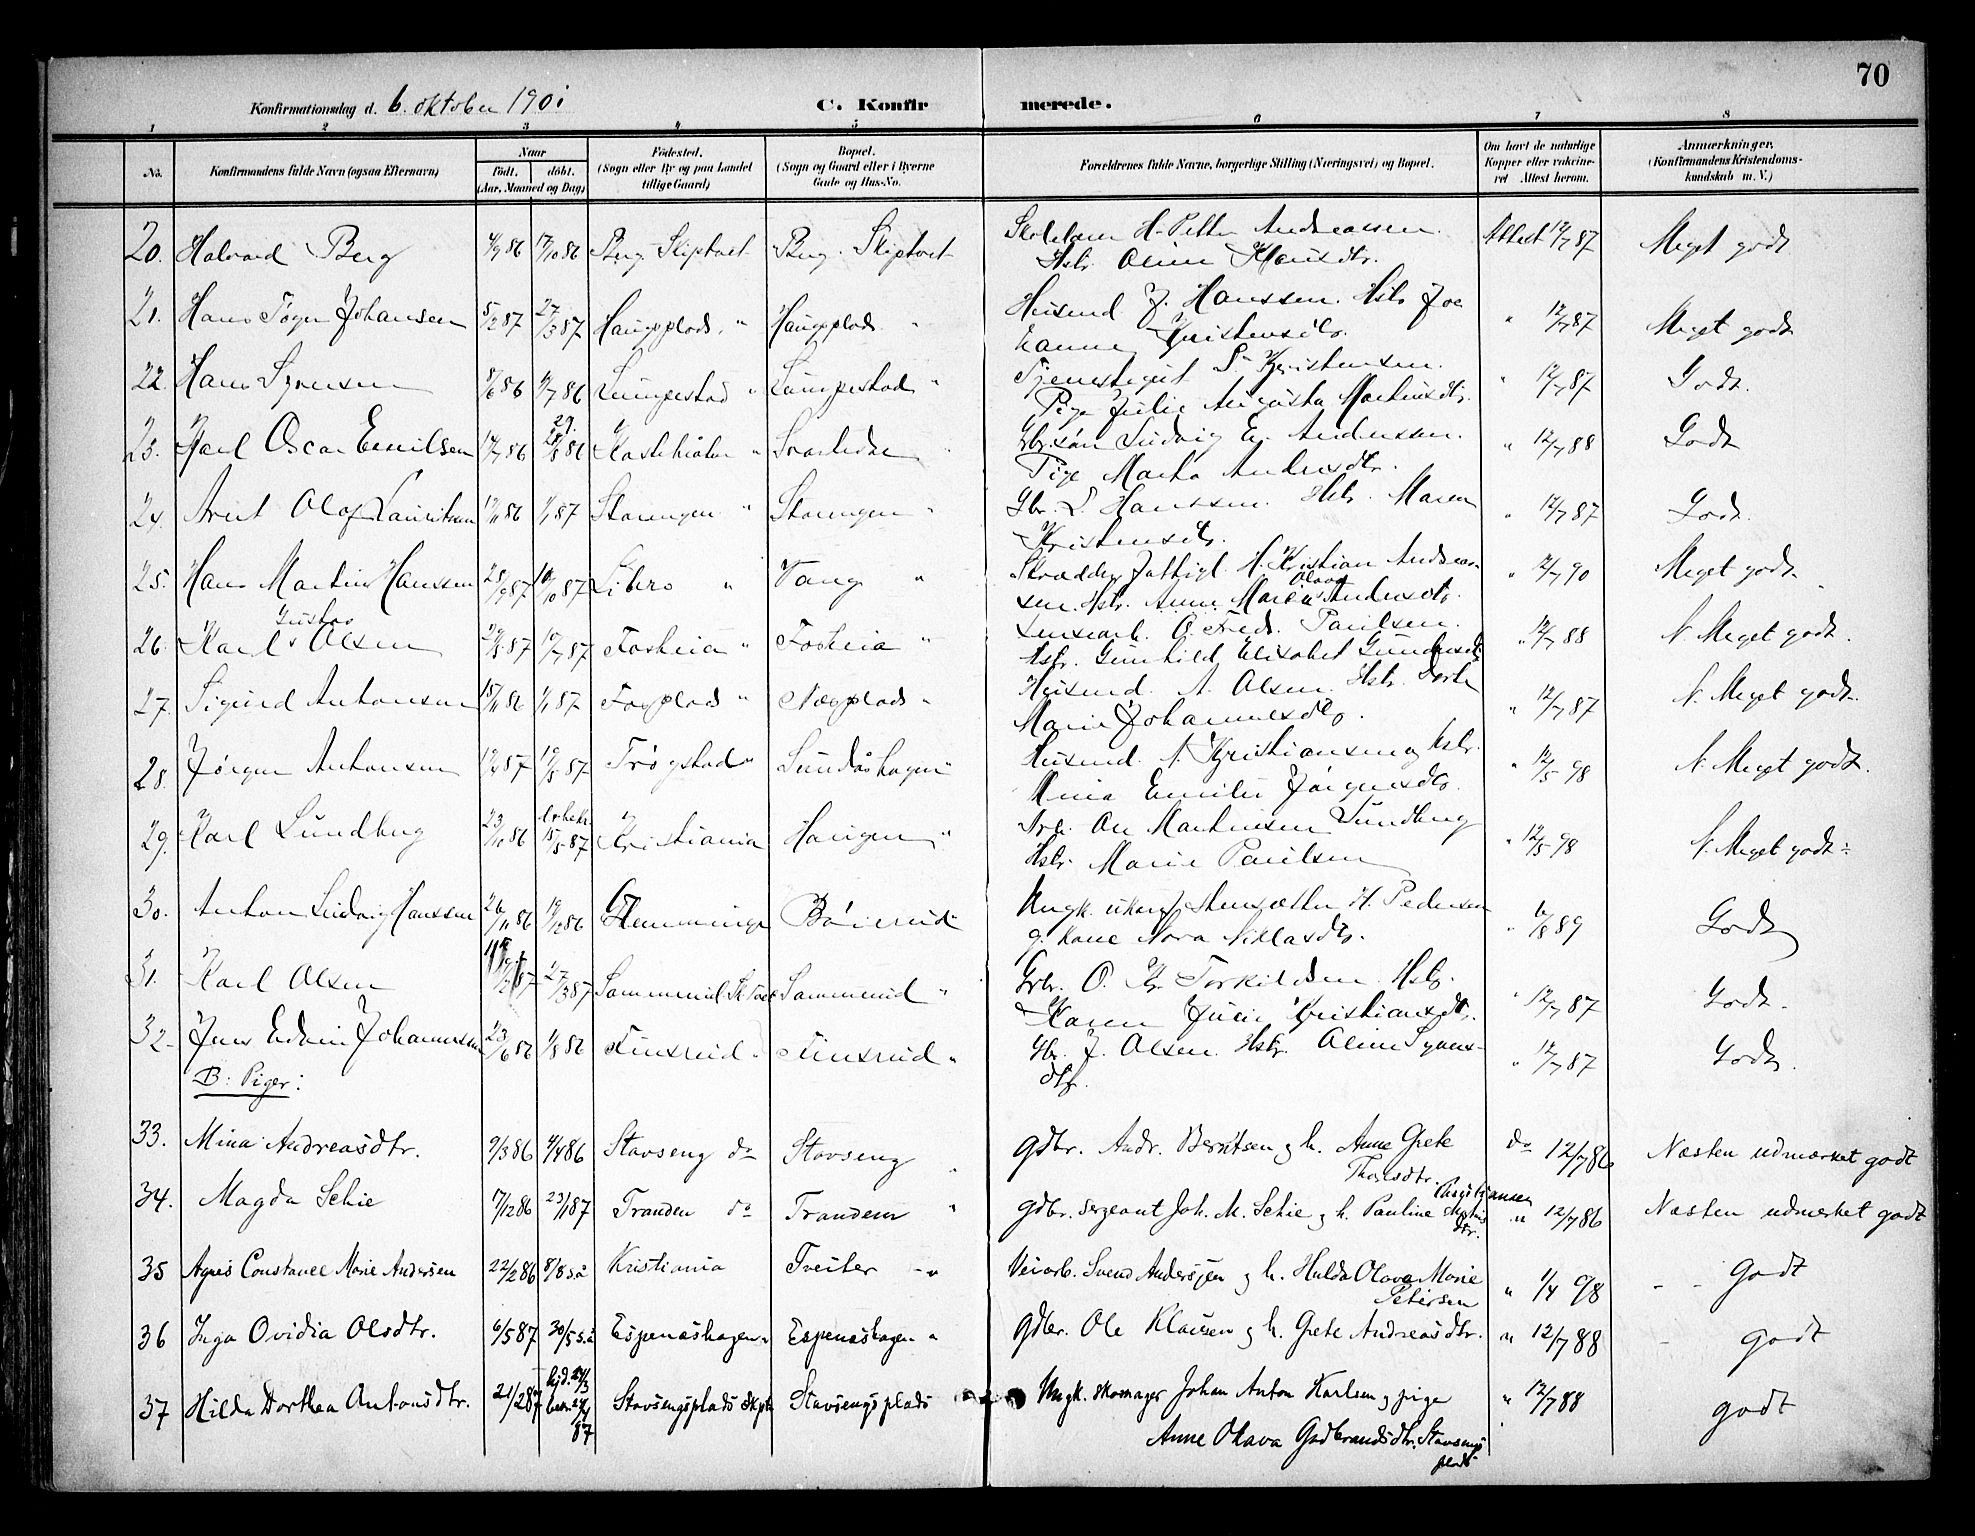 70
Konfirmationsdag d. 6. oktober 1901 C. Konfirmerede.
1 2 3 4 5 6 7 8
No. Konfirmandens fulde Navn (ogsaa Efternavn) Naar Født. døbt. (Aar, Maaned og Dag) Fødested. (Sogn eller By og paa Landet tillige Gaard) Bopæl. (Sogn og Gaard eller i Byerne Gade og Hus-No. Forældrenes fulde Navne, borgerlige Stilling (Næringsvei) og Bopæl. Om havt de naturlige Kopper eller vaccineret Attest herom. Anmærkninger. (Konfirmandens Kristendomskundskab m. V.)
20. Halvard Berg 4/9 86 17/10 86 Berg Skiptvet Berg. Skiptvet H. Petter Andreassen. Attest 12/7 87 Meget godt
Hstr. Oline Hansdtr.
21. Hans Johansen 5/2 87 27/3 87 Haugsplads. " Haugsplads " Husmd J. Hanssen. Hstr Jo " 12/7 87 Meget godt
hanne Kristensdtr.
22. Hans Syvensen 8/6 86 11/7 86 Lumpestad " Lumpestad " Tjenestegut S. Kristensen. " 12/7 87 Godt.
Pige Julie Augusta Martinsdtr.
23. Karl Oscar Emilsen 14/7 86 29/8 86 " Svartedal Gbr.søn Ludvig E. Andersen. " 12/7 88 Godt
Pige Marta Andersdtr.
24. Arvt Olaf Lauritsen 12/11 86 1/1 87 " " Gbr. L. Hanssen. Hstr. Maren " 12/7 87 Godt.
Kristensdtr.
25. Hans Martin Hanssen 28/9 87 16/10 87 Libro " Vang " Skrædder H. Kristian Andreas- " 12/7 90 Meget godt.
Olava
sen. Hstr. Anne Marie Andersdtr.
Gustav
26. Karl Olsen 29/5 87 10/7 87 Fosheia " Fosheia " O. Fredr. Paulsen. " 12/7 88 N. Meget godt.
Hstr. Gunhild Elisabet Gundersdtr.
27. Sigurd Antonsen 15/11 86 1/1 87 " Næsplads " Husmd. A. Olsen. Hstr. Dorte " 12/7 87 N. Meget godt.
Marie Johannesdtr.
28. Jørgen Antonsen 10/4 87 19/5 87 Trøgstad " Sundåshagen " Husmd. A. Kristiansen og Hstr. " 12/5 98 N. Meget godt.
Mina Emilie Jørgensdtr.
29. Karl Lundberg 23/10 86 15/5 87 Kristiania Haugen " Arb. Martinsen Lundberg " 12/5 98 N. Meget godt.
Hstr. Marie Paulsen
30. Anton Ludvig Hanssen 26/11 86 19/12 86 Glemminge " Ungk. H. Pedersen " 6/8 89 Godt
g. kone Nora Niklasdtr.
31. Karl Olsen 27/3 87 Sammerud Sammerud " Gbr. O. Kr. Torkildsen Hstr. " 12/7 87 Godt.
Karen Julie Kristiansdtr.
32. Jens Edvin Johannesen 23/6 86 1/8 86 Finsrud " Finsrud " Gbr. J. Olsen. Hstr. Oline Syvers- " 12/7 87 Godt.
dtr.
B: Piger:
33. Mina Andreasdtr. 9/3 86 4/4 86 Stavseng do Stavseng " gdbr. Andr. Berntsen g h. Anne Grete do 12/7 86 Næsten udmærket godt
Thorsdtr.
34. Magda Schie 17/12 86 23/1 87 Tranden do Tranden " gdbr. sergeant Joh. M. Schie g h. Pauline Christiansen " 12/7 86 Næsten udmerket godt
dtr.
35 Agnes Constance Marie Andersen 22/2 86 8/8 s.å Kristiania Treiter " Veiarb. Svend Anderssen g h. Hulda Olava Marie " 1/4 98 - - godt
Petersen
36 Inga Ovidia Olsdtr. 6/5 87 30/5 s.å Espenæshagen " Espenæshagen " gdbr. Ole Klausen g h. Grete Andreasdtr. " 12/7 88 - godt
37 Hilda Dorthea Antonsdtr. 21/2 87 hjd. 27/3 87 Stavsengsplads Skptv Stavsengsplads Ungk. skomager Johan Anton Karlsen g pige " 12/7 88 godt
Anne Olava Gudbrandsdtr. Stavsengs
plads